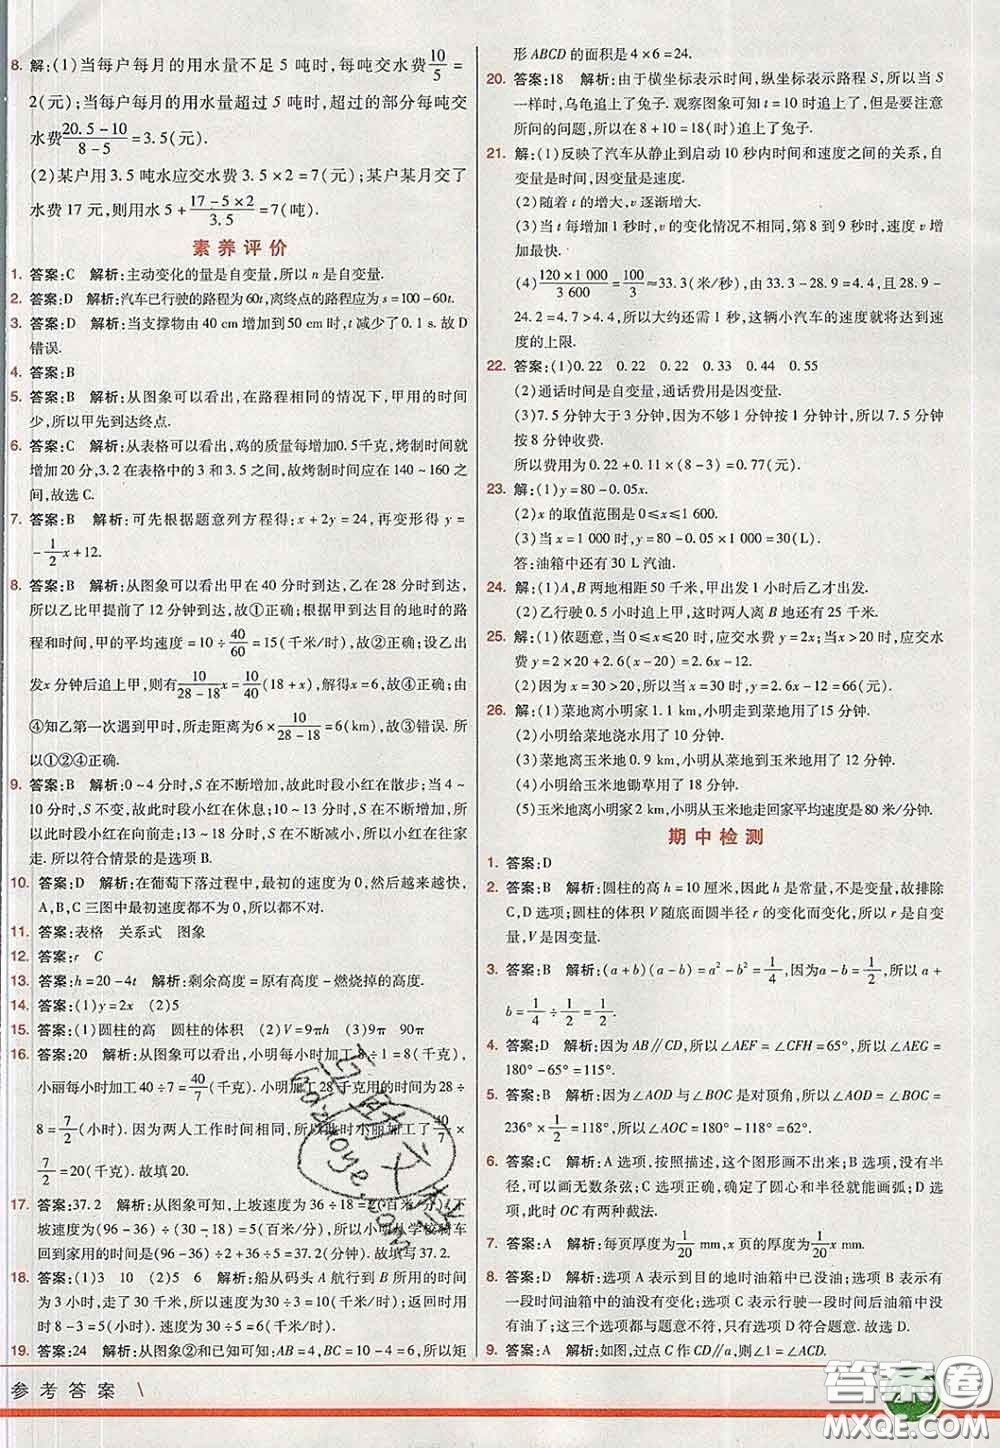 8. 解:(1)当每户每月的用水量不足 5 吨时,每吨交水费 10/5 =
2(元);当每户每月的用水量超过 5 吨时,超过的部分每吨交
水费 (20.5-10)/(8-5) =3.5(元).
(2)某户用 3.5 吨水应交水费 3.5×2=7(元);某户某月交了
水费 17 元,则用水 5+(17-5×2)/3.5=7(吨).
素养评价
1. 答案:C 解析:主动变化的量是自变量,所以 n 是自变量.
2. 答案:D 解析:汽车已行驶的路程为 60t,离终点的路程应为 s=100-60t.
3. 答案:D 解析:当支撑物由 40 cm 增加到 50 cm 时,t 减少了 0.1 s. 故 D
错误.
4. 答案:B
5. 答案:B 解析:从图象可以看出,在路程相同的情况下,甲用的时间
少,所以甲先到达终点.
6. 答案:C 解析:从表格可以看出,鸡的质量每增加0.5千克,烤制时间就
增加 20 分,3.2 在表格中的 3 和 3.5 之间,故烤制时间应在 140~160 之
间,故选 C.
7. 答案:B 解析:可先根据题意列方程得:x+2y=24,再变形得 y=
-1/2 x+12.
8. 答案:B 解析:从图象可以看出甲在 40 分时到达,乙在 28 分时到达,
所以乙比甲提前了 12 分钟到达,故①正确;根据甲到达目的地时的路
程和时间,甲的平均速度=10÷40/60=15(千米/时),故②正确;设乙出
发 x 分钟后追上甲,则有 10/(28-18) x=10/40(18+x),解得 x=6,故④正确;由
④知乙第一次遇到甲时,所走距离为 6×10/(28-18)=6(km),故③错误. 所
以①②④正确.
9. 答案:B 解析:0~4 分时,S 在不断增加,故此时段小红在散步;当 4
~10分时,S 不变,故此时段小红在休息;10~13 分时,S 在不断增加,
所以此时段小红在向前走;13~18 分,S 在不断减小,所以小红在往家
走. 所以符合情景的是选项 B.
10. 答案:D 解析:在葡萄下落过程中,最初的速度为0,然后越来越快,
A,B,C 三图中最初的速度都不为 0,所以都不对.
11. 答案:表格 关系式 图象
12. 答案:r C
13. 答案:h=20-4t 解析:剩余高度=原有高度-燃烧掉的高度.
14. 答案:(1)y=2x (2)5
15. 答案:(1)圆柱的高 圆柱的体积 (2)V=9πh (3)9π 90π
16. 答案:20 解析:从图象可以看出,小明每小时加工 8÷1=8(千克),
小丽每小时加工 40÷7=40/7(千克). 小明加工 28 千克用的时间为 28÷
8=7/2(小时). 因为两人工作时间相同,所以此时小丽加工了 40/7×
7/2=20(千克). 故填 20.
17. 答案:37.2 解析:从图象可知,上坡速度为 36÷18=2(百米/分),下
坡速度为(96-36)÷(30-18)=5(百米/分),所以小明从学校骑车
回到家用的时间为(96-36)÷2+36÷5=37.2(分钟). 故填写 37.2.
18. 答案:(1)3 10 (2)5 6 解析:船从码头 A 航行到 B 所用的时间
为 3 小时,走了 30 千米,所以速度为 30÷3=10(千米/时);返回时用
时 8-3=5(小时). 速度为 30÷5=6(千米/时).
19. 答案:24 解析:从图象②和已知可知:AB=4,BC=10-4=6,所以矩
形 ABCD 的面积是 4×6=24.
20. 答案:18 解析:由于横坐标表示时间,纵坐标表示路程 S,所以当 S
一样时,乌龟追上了兔子. 观察图象可知 t=10 时追上了,但是要注意
所问的问题,所以在 8+10=18(时)追上了兔子.
21. 解:(1)反映了汽车从静止到启动 10 秒内时间和速度之间的关系,自
变量是时间,因变量是速度.
(2)随着 t 的增大,v 逐渐增大.
(3)当 t 每增加 1 秒时,v 的变化情况不相同. 第 8 到 9 秒时,速度 v
增加最快.
(4)(120×1 000)/3 600=100/3≈33.3(米/秒),由 33.3-28.9=4.4,且 28.9-
24.2=4.7>4.4,所以大约还需 1 秒,这辆小汽车的速度就将达到速
度的上限.
22. 答案:(1)0.22 0.22 0.33 0.44 0.55
(2)通话时间是自变量,通话费用是因变量.
(3)7.5 分钟大于 3 分钟,因为不够 1 分钟按 1 分钟计,所以 7.5 分钟
按 8 分钟收费.
所以费用为 0.22+0.11×(8-3)=0.77(元).
23. 解:(1)y=80-0.05x.
(2)x 的取值范围是 0≤x≤1 600.
(3)当 x=1 000 时,y=80-0.05×1 000=30(L)
答:油箱中还有 30 L 汽油.
24. 解:(1)A,B 两地相距 50 千米,甲出发 1 小时后乙才出发.
(2)乙行驶 0.5 小时追上甲,这时两人离 B 地还有 25 千米.
25. 解:(1)依题意,当 0≤x≤20 时,应交水费 y=2x;当 x>20 时,应交水
费 y=2×20+2.6(x-20)=2.6x-12.
(2)因为 x=30>20,所以 y=2.6×30-12=66(元).
26. 解:(1)菜地离小明家 1.1 km,小明走到菜地用了15分钟.
(2)小明给菜地浇水用了 10 分钟.
(3)菜地离玉米地 0.9 km,小明从菜地到玉米地用了 12 分钟.
(4)小明给玉米地锄草用了 18 分钟.
(5)玉米地离小明家 2 km,小明从玉米地走回家平均速度是 80 米/分钟.
期中检测
1. 答案:D
2. 答案:B 解析:圆柱的高 h=10 厘米,因此 h 是常量,不是变量,故排除
C,D 选项;圆柱的体积 V 随底面圆半径 r 的变化而变化,所以 r 是自变
量,V 是因变量.
3. 答案:B 解析:(a+b)(a-b)=a²-b²=1/4,因为a-b=1/2,所以 a+
b=1/4÷1/2=1/2.
4. 答案:D 解析:因为 AB∥CD,所以∠AEF=∠CFH=65°,所以∠AEG=
180°-65°=115°.
5. 答案:B 解析:因为∠AOD 与∠BOC 是对顶角,所以∠AOD=∠BOC=
236°×1/2=118°,所以∠AOC=180°-∠BOC=180°-118°=62°.
6. 答案:C 解析:A 选项,按照描述,这个图形画不出来;B 选项,一个圆
可以画无数条弦;C 选项正确,确定了圆心和半径就能画圆;D 选项,
由此,此时 OC 有两种截法.
7. 答案:A 解析:每页厚度为 1/20 mm,x 页的厚度为 1/20 x mm.
8. 答案:D 解析:选项 A 表示到目的地时油箱中已没油;选项 B 表示在
有一段时间油箱中的油没有变化;选项 C 表示行驶一段时间后油箱中
没有油了;这三个选项都与题意不符,只有选项 D 符合题意. 故选 D.
9. 答案:A 解析:如图,过点 C 作 CD∥a,则∠1=∠ACD.
参考答案
答案圈
MXQE.COM